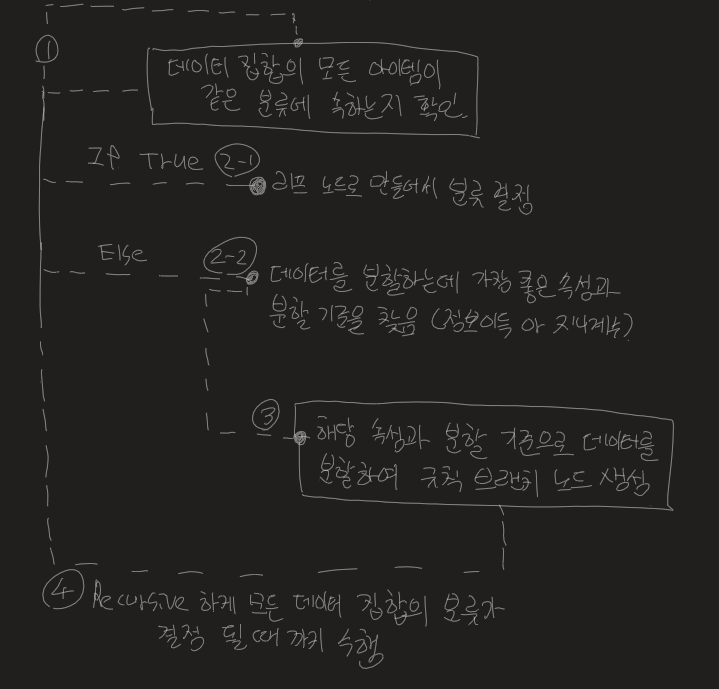 ①
데이터 집합의 모든 아이템이
같은 분류에 속하는지 확인.
If True 2-1
리프 노드로 만들어서 분류 결정
Else 2-2
데이터를 분할하는데 가장 좋은 속성과
분할 기준을 찾음 (정보이득 or 지니계수)
③
해당 속성과 분할 기준으로 데이터를
분할하여 규칙 브랜치 노드 생성
④ Recursive 하게 모든 데이터 집합의 분류가
결정 될 때 까지 수행